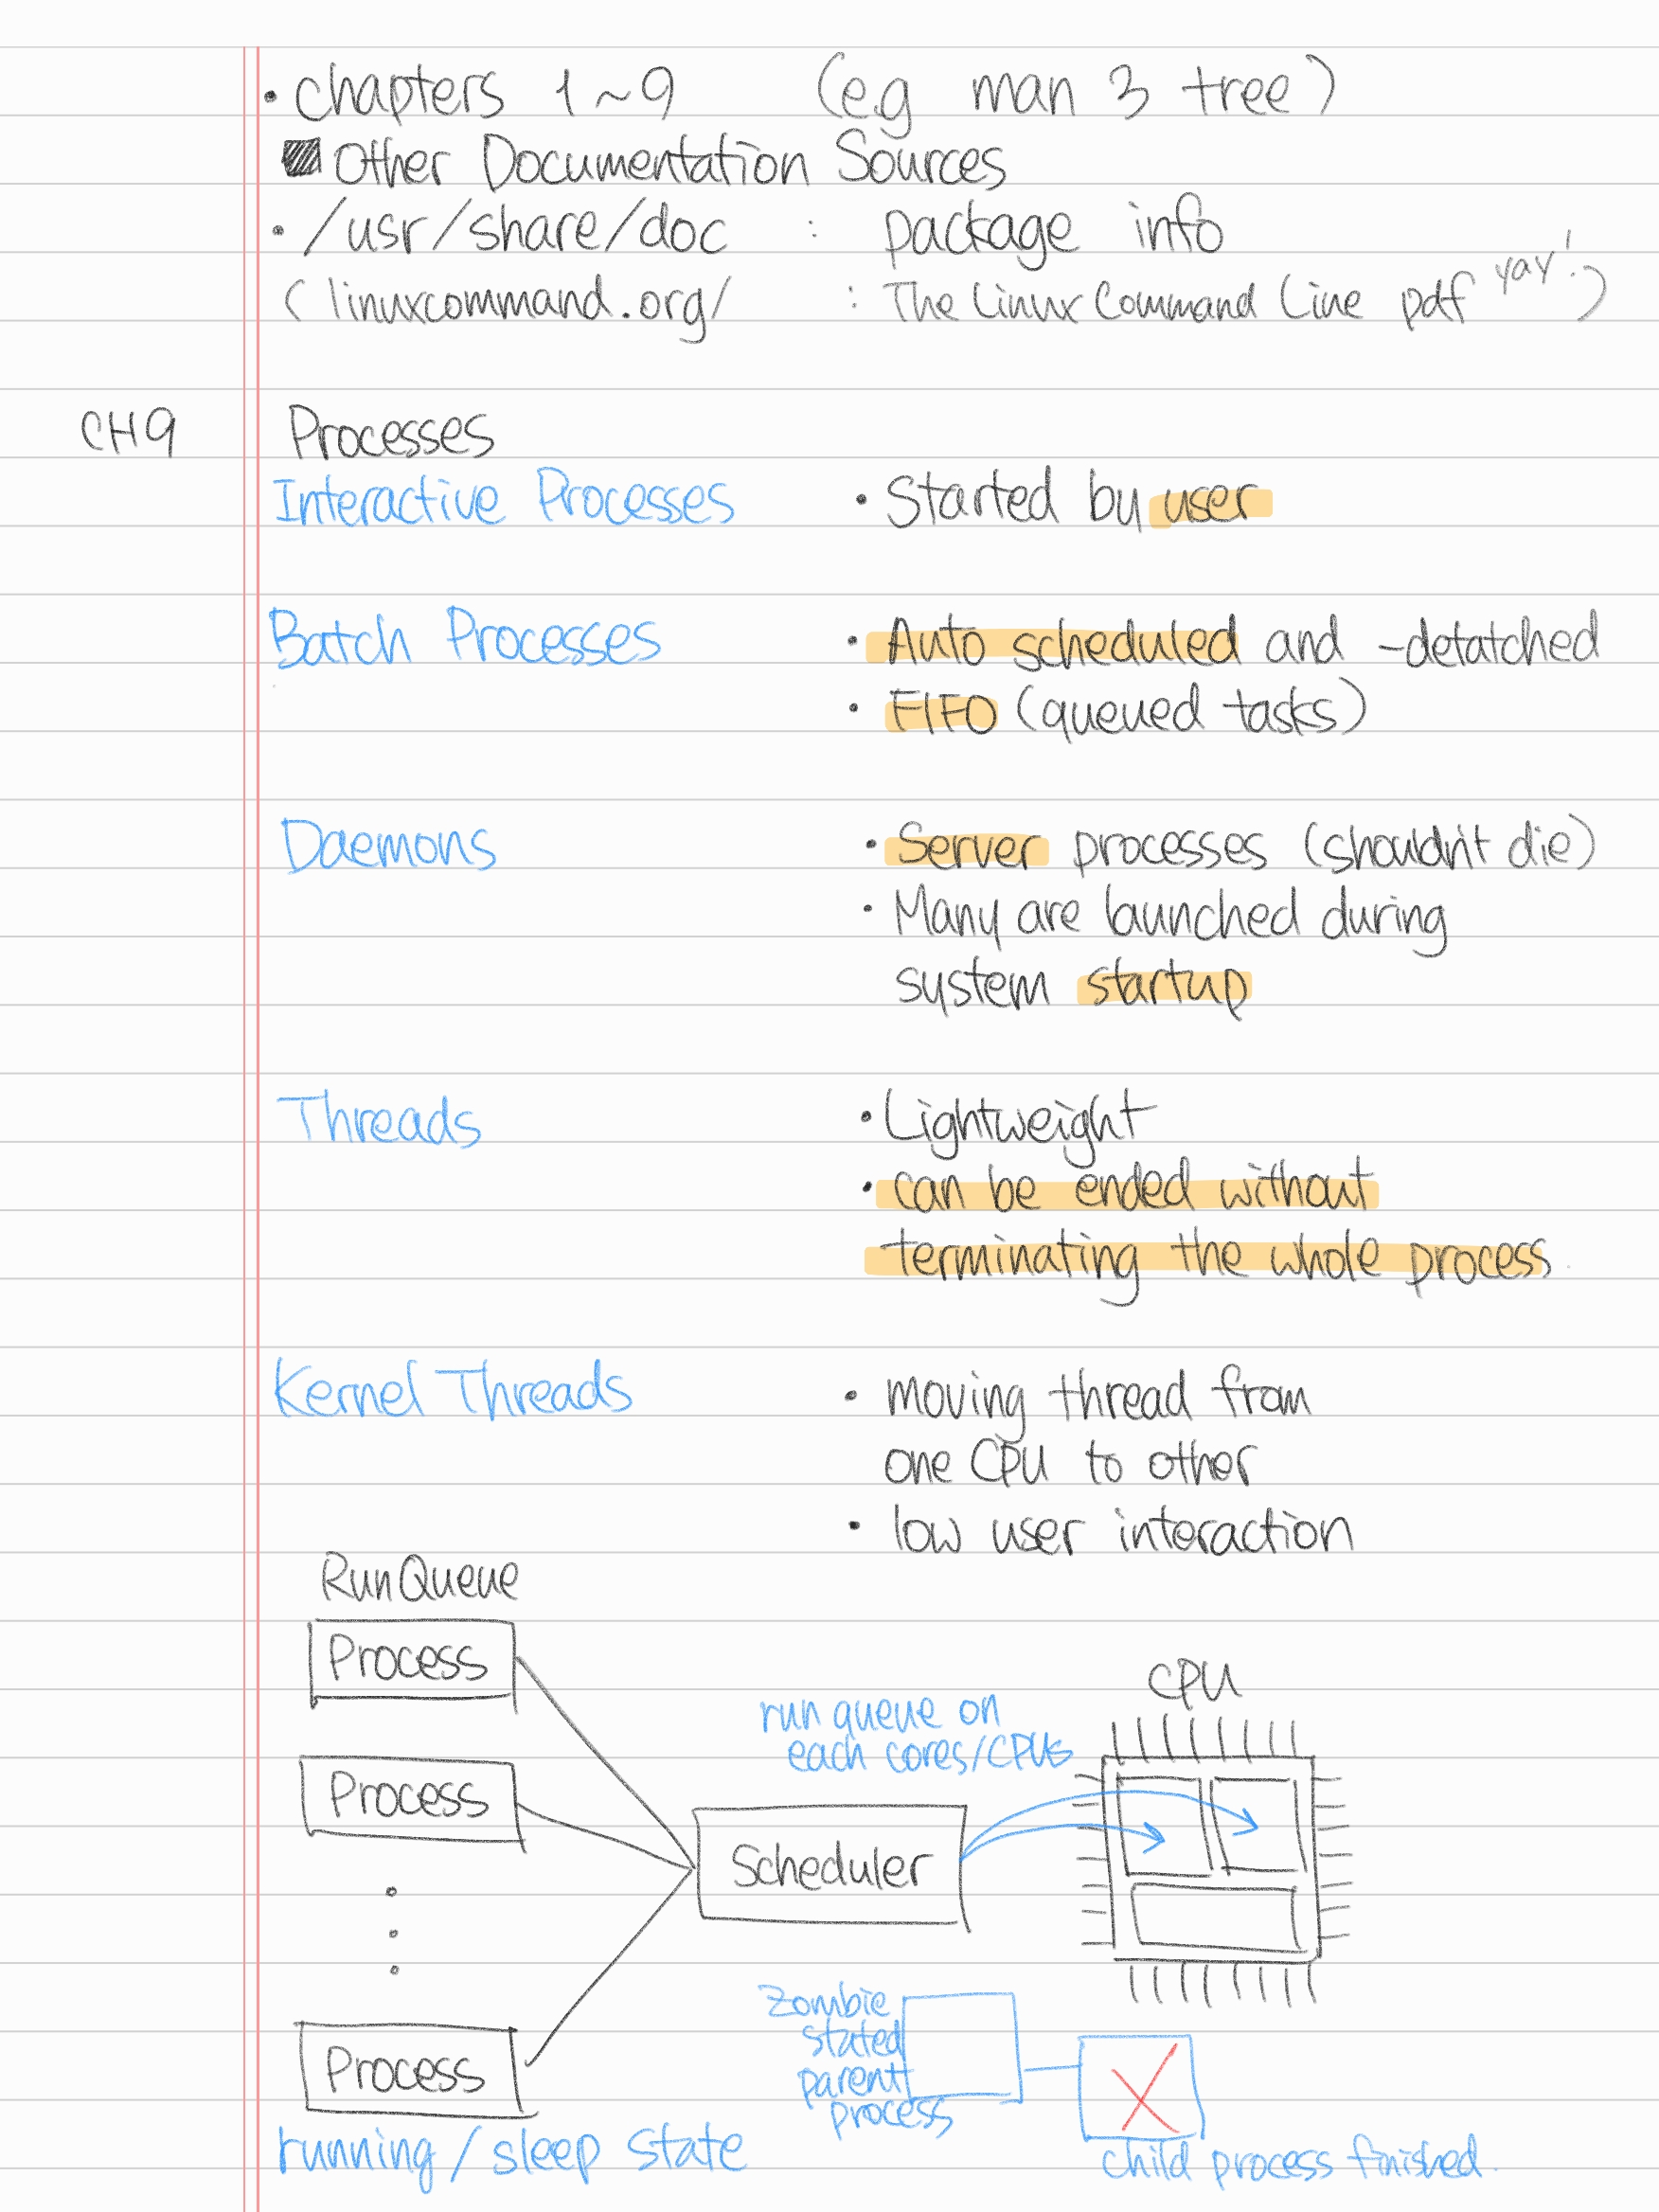 • chapters 1~9 (e.g man 3 tree)
Other Documentation Sources
• /usr/share/doc : package info
( linuxcommand.org/ : The Linux Command Line pdf yay! )
CH9 Processes
Interactive Processes • Started by user
Batch Processes • Auto scheduled and -detatched
• FIFO (queued tasks)
Daemons • Server processes (shouldn't die)
• Many are launched during
system startup
Threads • Lightweight
• can be ended without
terminating the whole process
Kernel Threads • moving thread from
one CPU to other
• low user interaction
RunQueue
Process
CPU
run queue on
each cores/CPUs
Process
Scheduler
Process
Zombie
stated
parent
process
running/sleep state
child process finished.